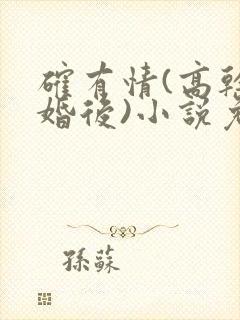 確有情(高幹
婚後)小說
孫蘇